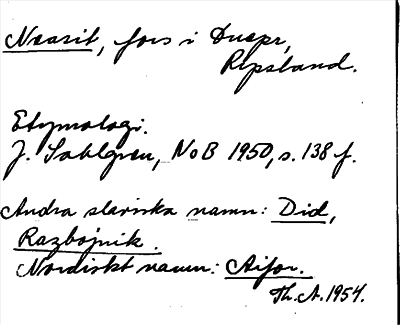 Neasit, fors i Dnepr,
Ryssland.
Etymologi.
J. Sahlgren, NoB 1950, s. 138 f.
Andra slaviska namn: Did,
Razbojnik.
Nordiskt namn: Aifor.
Th. A. 1954.